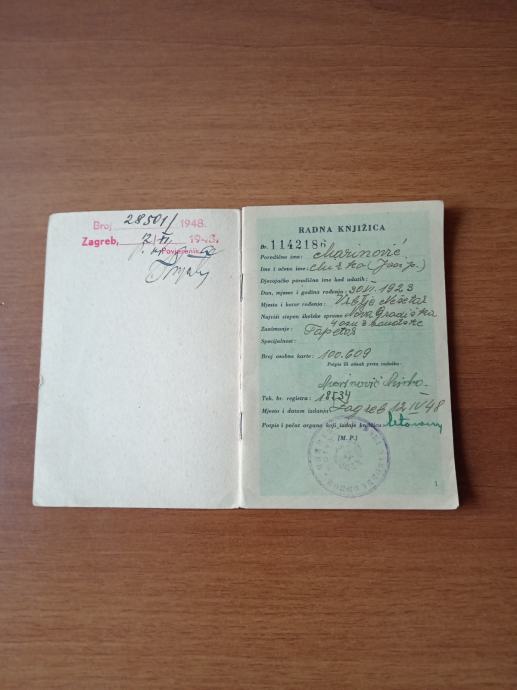 Broj 28501/ 1948.
Zagreb, 12/VI. 1948.
Povjerenik
RADNA KNJIŽICA
Br. 114218
Porodično ime: Marinović
Ime i očevo ime: Mirko (Josip)
Djevojačko porodično ime kod udatih:
Dan, mjesec i godina rođenja: 30.VI. 1923
Mjesto i kotar rođenja: Vrbje
Najviši stepen školske spreme Nova Gradiška
4 osn.
Zanimanje: Tapetar
Specijalnost:
Broj osobne karte: 100.609
Potpis ili otisak prsta radnika:
Marinović Mirko
Tek. br. registra: 18534
Mjesto i datum izdanja: Zagreb 12.IV 48
Potpis i pečat organa koji izdaje knjižicu:
(M. P.)
1